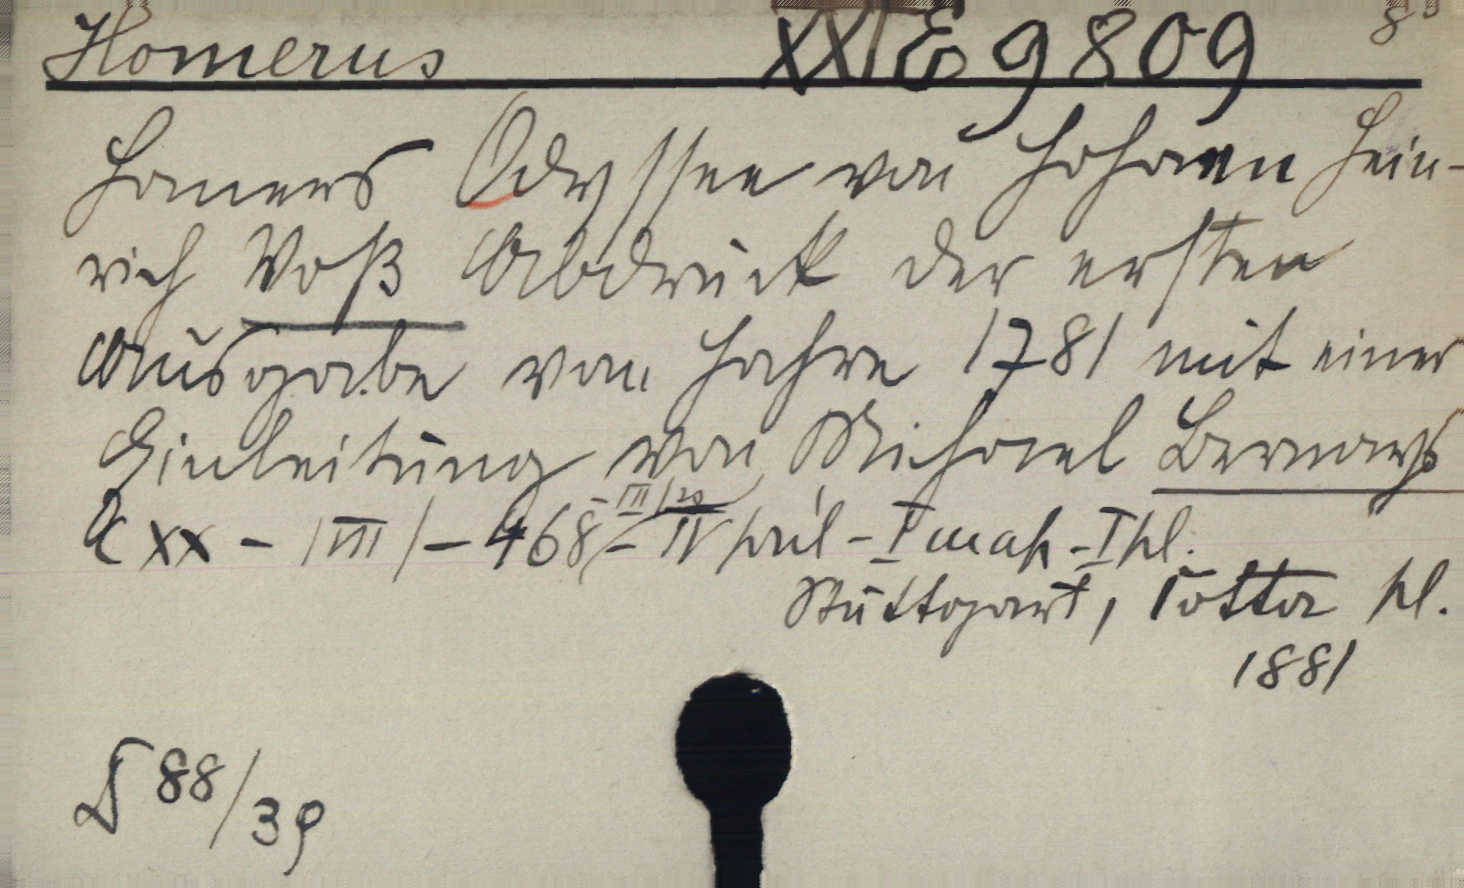 Homerus XXI E 9809 8°
Homers Odyssee von Johann Hein-
rich Voß Abdruck der ersten
Ausgabe vom Jahre 1781 mit einer
Einleitung von Michael Bernays
III/20
CXX - |VII| - 468 - IV - I map - I pl.
Stuttgart, Cotta
1881
88/39